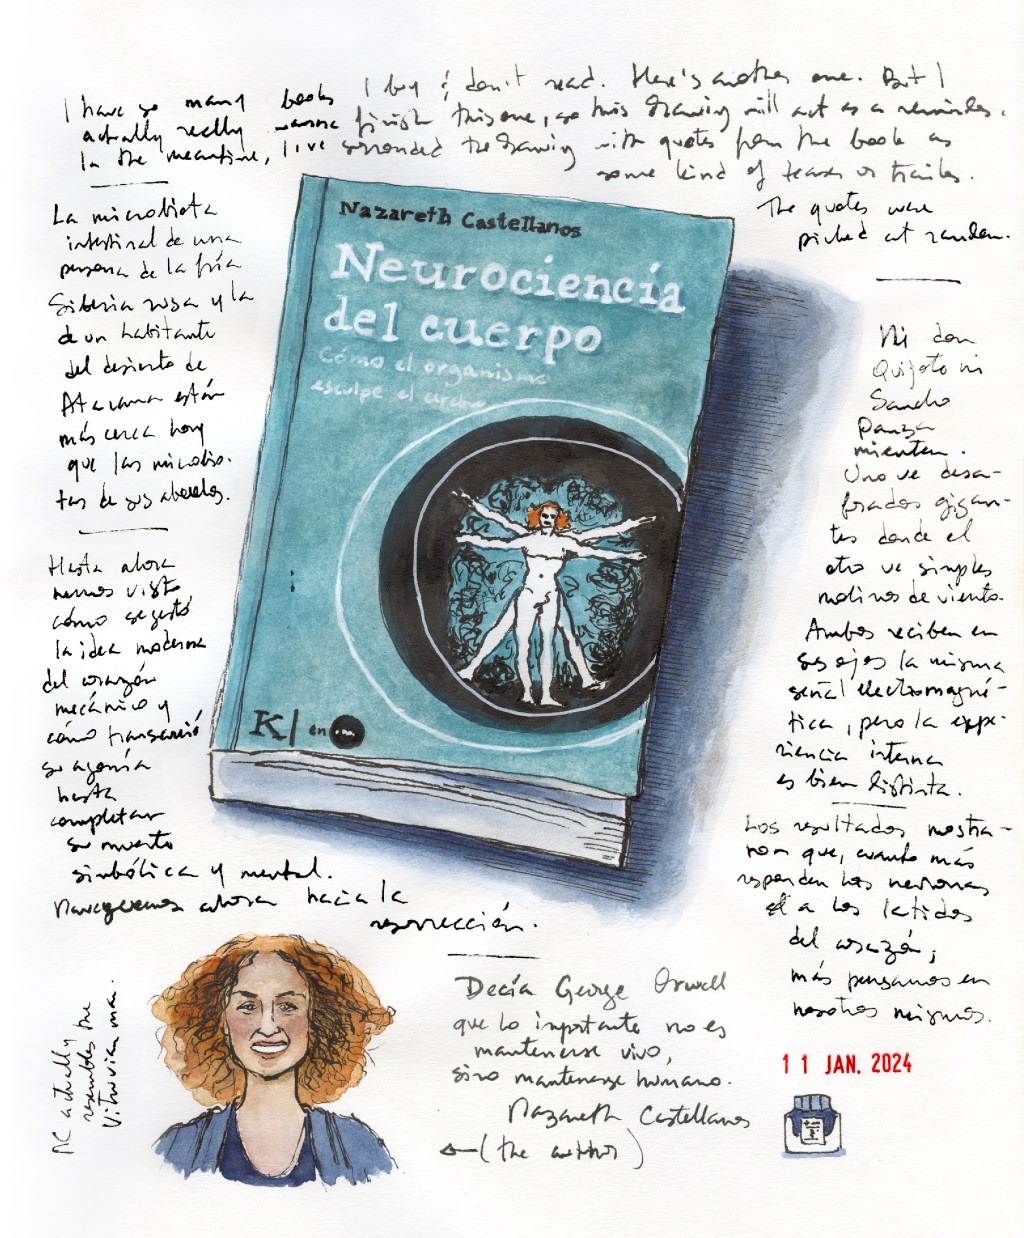 I have so many books I buy & don't read. Here's another one. But I
actually really wanna finish this one, so this drawing will act as a reminder.
In the meantime, I've surronded the drawing with quotes from the book as
some kind of teaser or trailer.
The quotes were
picked at random.
La microbiota
intestinal de una
persona de la fría
Siberia rusa y la
de un habitante
del desierto de
Atacama están
más cerca hoy
que las microbio-
tas de sus abuelos.
Hasta ahora
hemos visto
cómo se gestó
la idea moderna
del corazón
mecánico y
cómo transcurrió
su agonía
hasta
completar
su muerte
simbólica y mental.
Naveguemos ahora hacia la
resurrección.
Nazareth Castellanos
Neurociencia
del cuerpo
Cómo el organismo
esculpe el cerebro
K| en
Ni don
Quijote ni
Sancho
Panza
mienten.
Uno ve desa-
forados gigan-
tes donde el
otro ve simples
molinos de viento.
Ambos reciben en
sus ojos la misma
señal electromagné-
tica, pero la expe-
riencia interna
es bien distinta.
Los resultados mostra-
ron que, cuanto más
responden las neuronas
a los latidos
del corazón,
más pensamos en
nosotros mismos.
NC actually
resembles the
Vitruvian man.
Decía George Orwell
que lo importante no es
mantenerse vivo,
sino mantenerse humano.
Nazareth Castellanos
(the author)
11 JAN. 2024